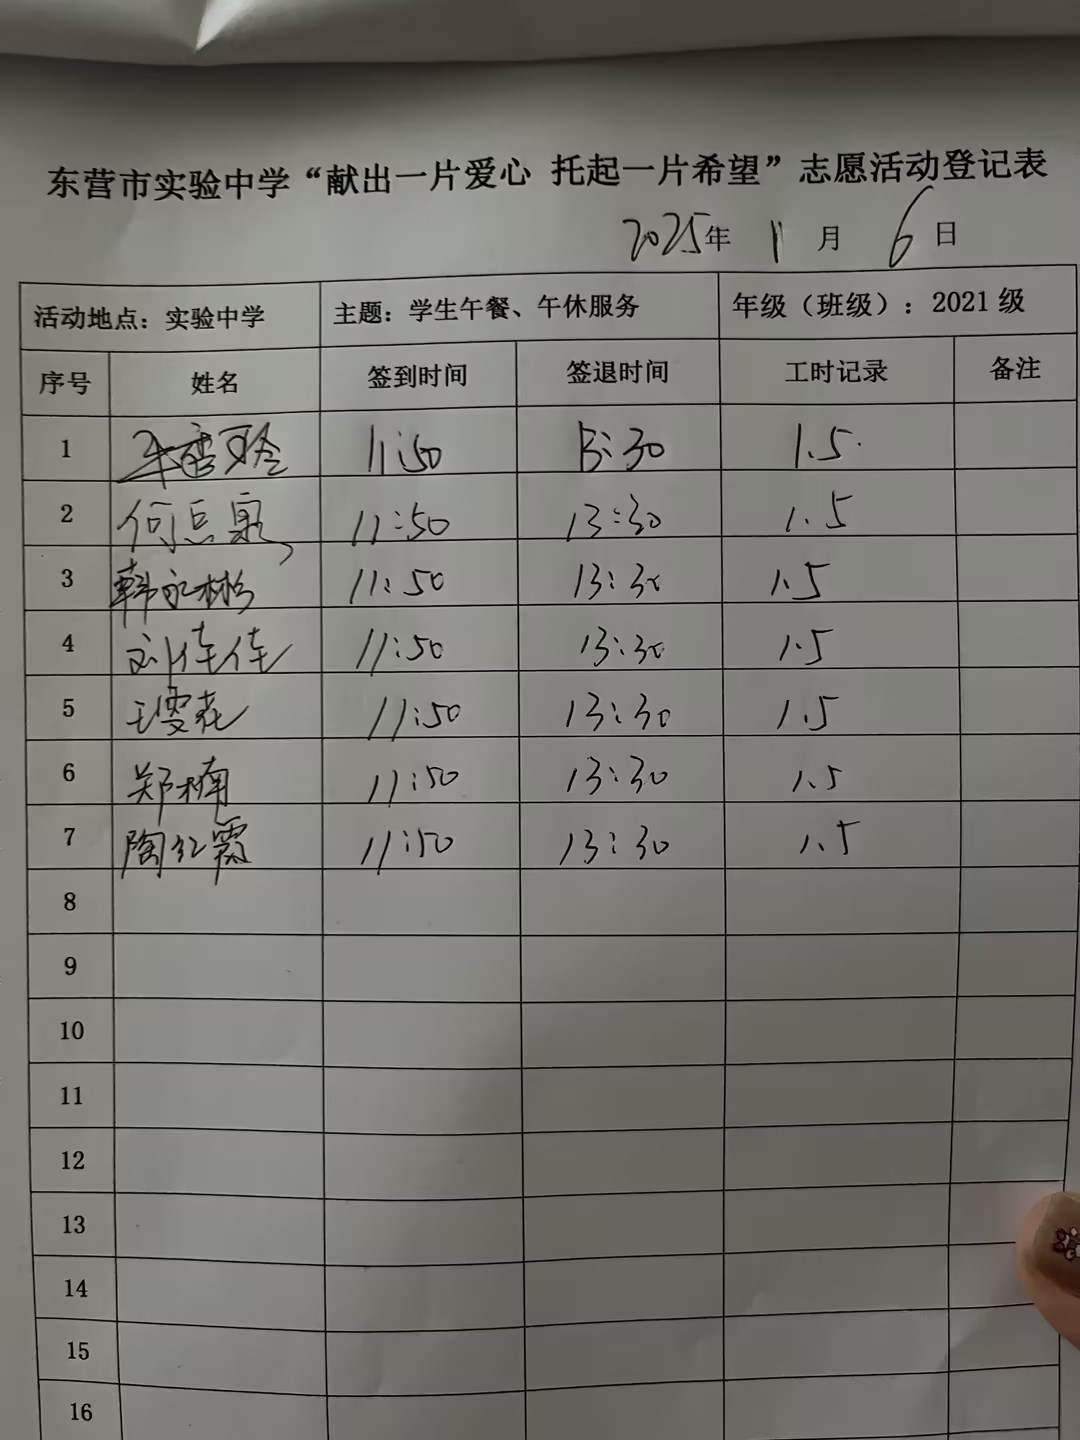 东营市实验中学“献出一片爱心 托起一片希望”志愿活动登记表
2025年 11月 6日
活动地点：实验中学 主题：学生午餐、午休服务 年级（班级）：2021级
序号 姓名 签到时间 签退时间 工时记录 备注
1 11:50 13:30 1.5
2 11:50 13:30 1.5
3 韩永彬 11:50 13:30 1.5
4 刘佳佳 11:50 13:30 1.5
5 王雯花 11:50 13:30 1.5
6 郑楠 11:50 13:30 1.5
7 陶红霞 11:50 13:30 1.5
8
9
10
11
12
13
14
15
16